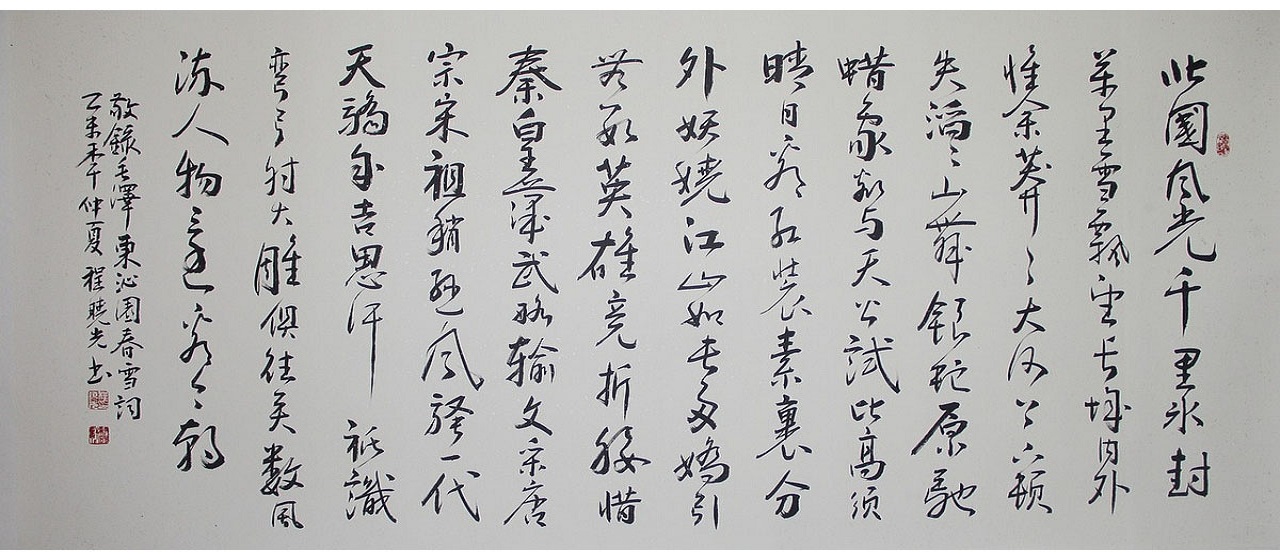 北國风光千里冰封
萬里雪飄望长城内外
惟余莽々大河上下顿
失滔々山舞银蛇原驰
蜡象欲与天公試比高须
晴日看红装素裹分
外妖娆江山如此多嬌引
无数英雄竞折腰惜
秦皇漢武略输文采唐
宗宋祖稍逊风骚一代
天骄成吉思汗祗識
弯弓射大雕俱往矣數風
流人物還看今朝
敬錄毛澤東沁園春雪詞
乙未年仲夏程曉光书